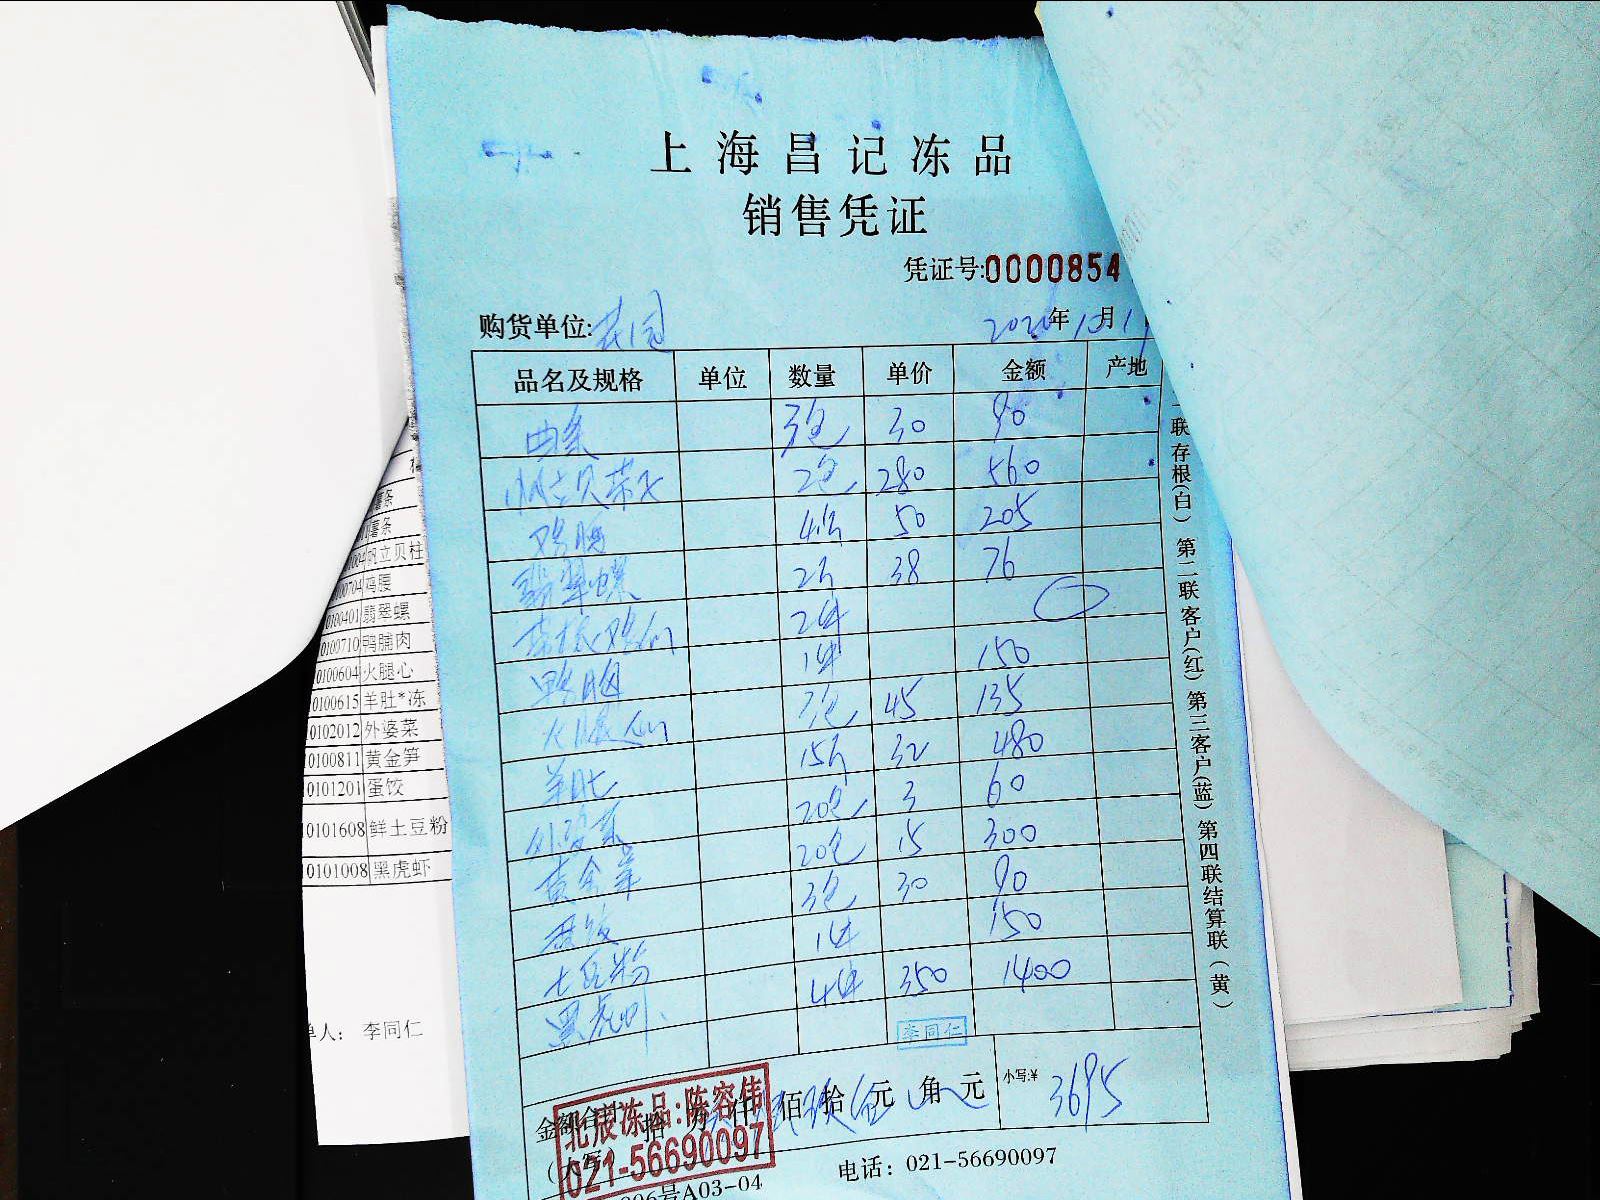 上海昌记冻品
销售凭证
凭证号:0000854
购货单位:花园 2020年10月1
品名及规格 单位 数量 单价 金额 产地
曲条 3包 30 90
帆立贝 2包 280 560
鸡腰 50 205
翡翠螺 2斤 38 76
2件
鸭脯 1件 150
火腿心 3包 45 135
羊肚 15斤 32 480
外婆菜 20包 3 60
黄金笋 20包 15 300
蛋饺 3包 30 90
土豆粉 1件 150
黑虎虾 4件 350 1400
李同仁
佰 拾 元 角 元 小写:¥ 3695
北辰冻品:陈容伟
021-56690097
电话：021-56690097
206号A03-04
联存根(白) 第二联客户(红) 第三客户(蓝) 第四联结算联(黄)
薯条
薯条
004 帆立贝柱
00704 鸡腰
0100401 翡翠螺
0100710 鸭脯肉
0100604 火腿心
0100615 羊肚*冻
0102012 外婆菜
0100811 黄金笋
0101201 蛋饺
0101608 鲜土豆粉
0101008 黑虎虾
单人： 李同仁